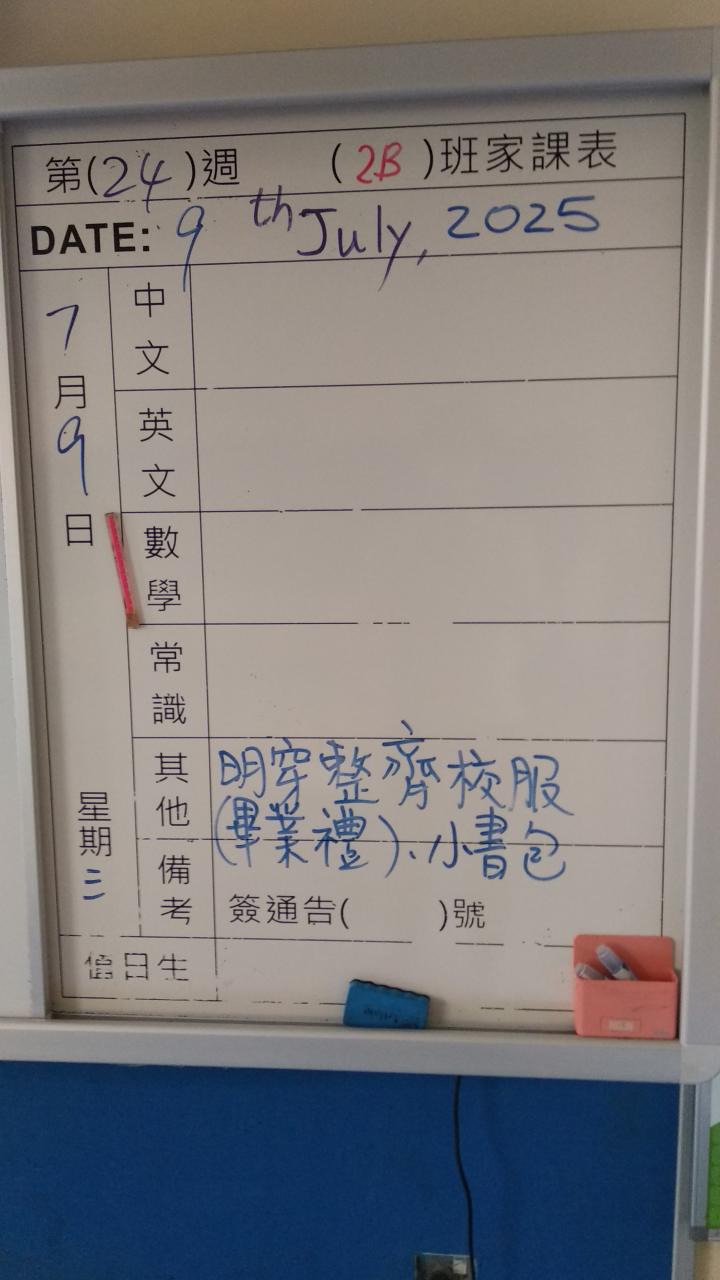 第(24)週 (2B)班家課表
DATE: 9th July, 2025
7月9日
星期三
中文
英文
數學
常識
其他
明穿整齊校服
(畢業禮)、小書包
備考
簽通告( )號
值日生